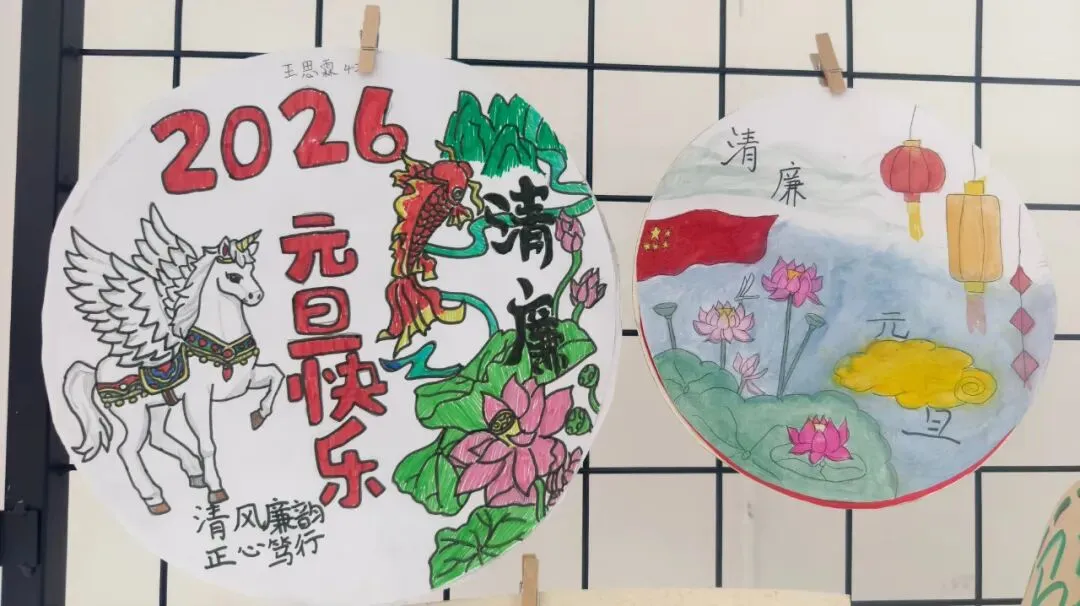 王思霖
2026
元旦快乐
清廉
清风廉韵
正心笃行
清廉
元旦